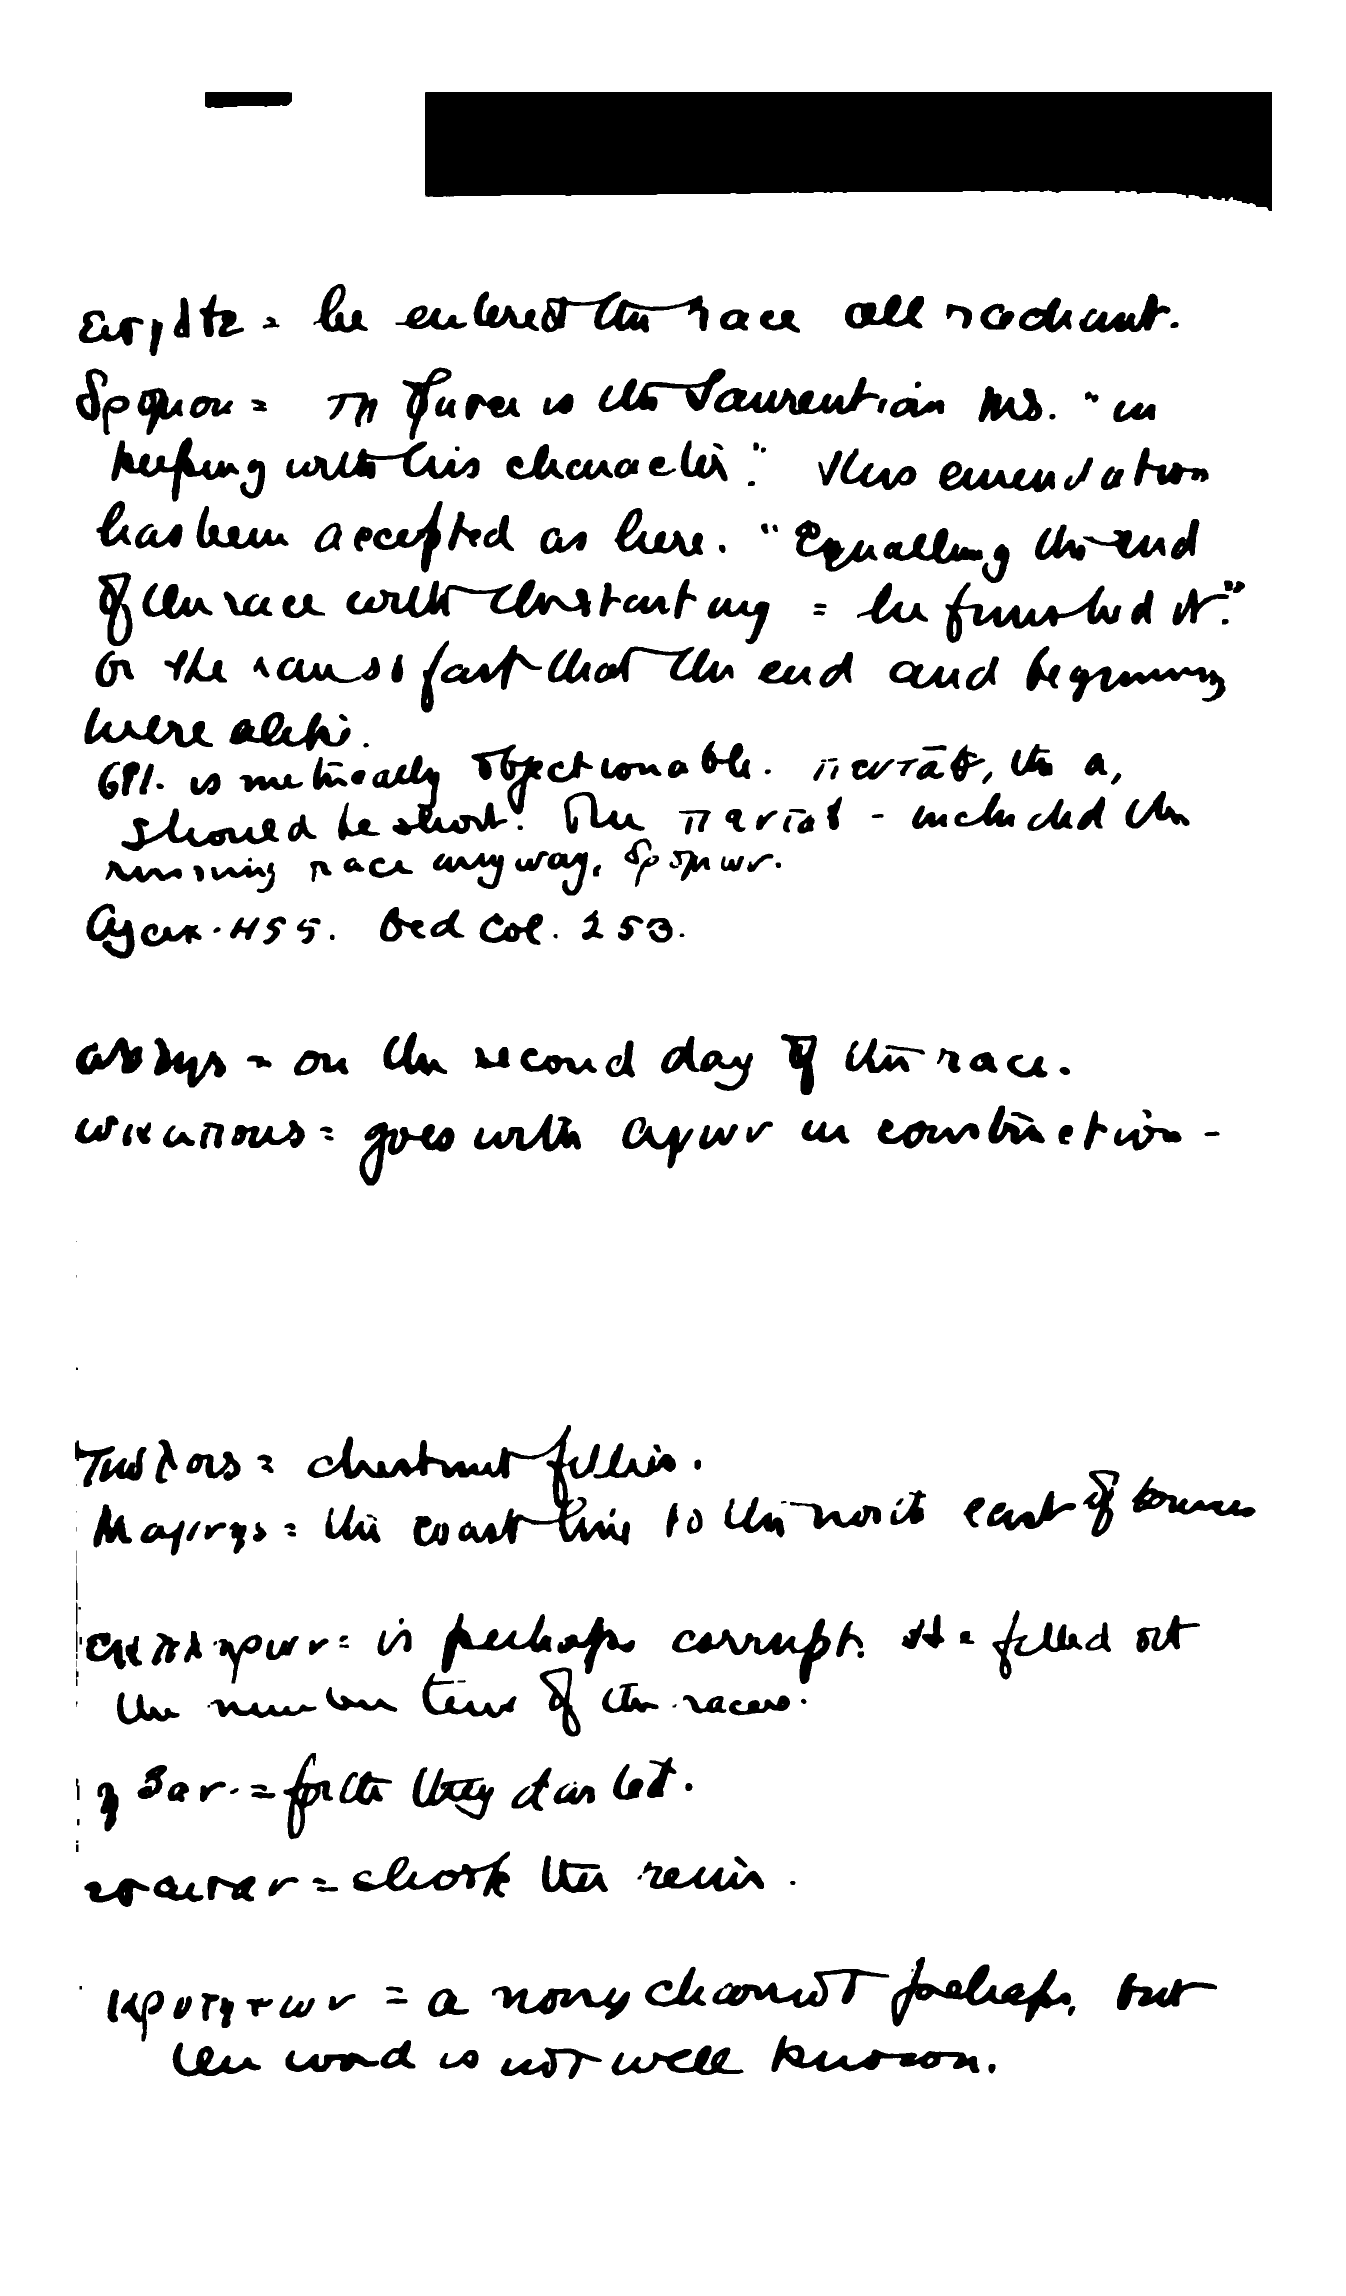 εισηλθε = he entered the race all radiant.
δρομου = τη φυσει is the Laurentian MS. "in
keeping with his character." This emendation
has been accepted as here. "Equalling the end
of the race with the starting = he finished it."
Or the ran so fast that the end and beginning
were alike.
691. is metrically objectionable. πενταθ, the α,
should be short. The πενταθ - included the
running race anyway, δρομων.
Ajax. 455. Oed Col. 253.
αλλης = on the second day of the race.
ωκυπους = goes with αγων in construction -
πωλοις = chestnut fillies.
Μαγνης = the coast line to the north east of
εκπληρων = is perhaps corrupt. He = filled out
the number ten of the racers.
ηξαν = forth they darted.
= check the rein.
κροτητων = a noisy chariot perhaps, but
the word is not well known.